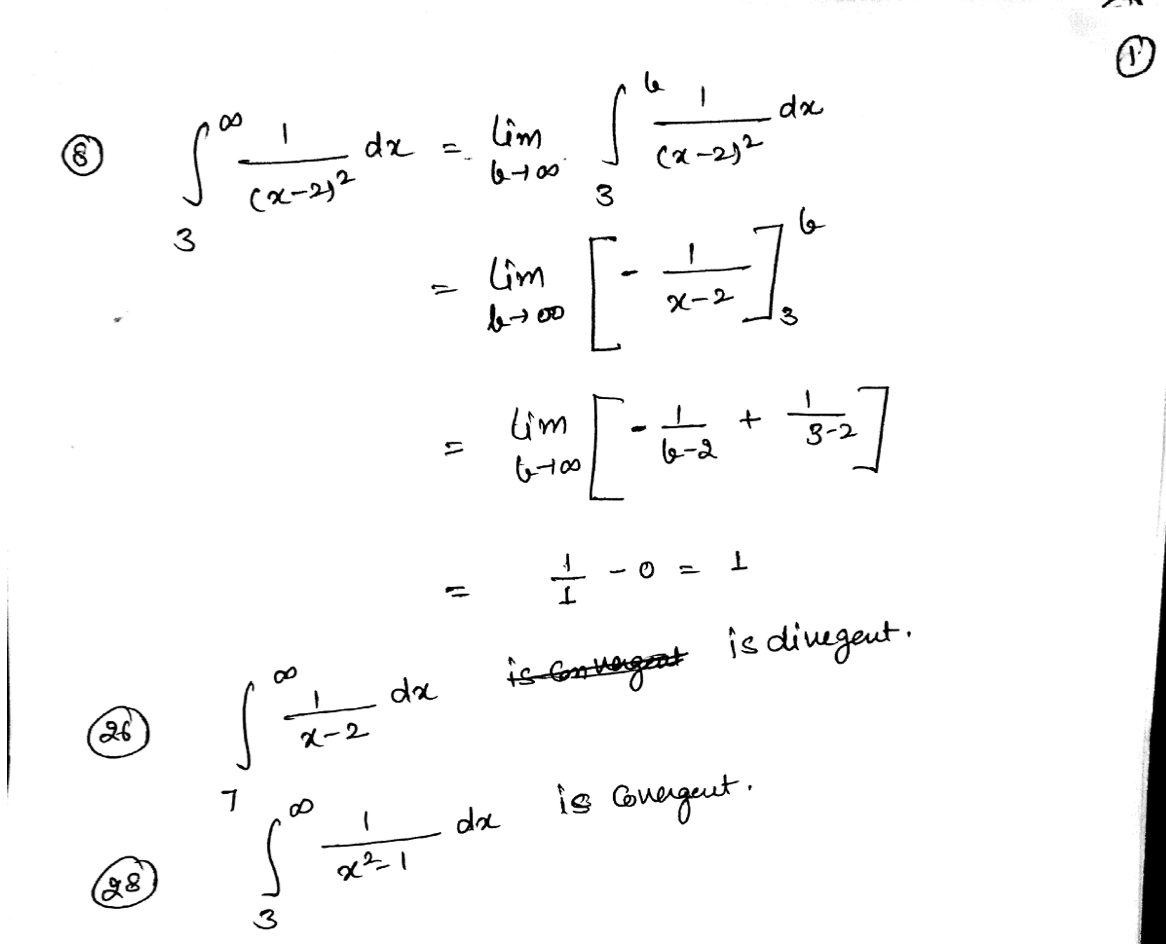 ①
⑧ ∫₃^∞ 1/(x-2)² dx = lim b→∞ ∫₃^b 1/(x-2)² dx
= lim b→∞ [- 1/x-2]₃^b
= lim b→∞ [- 1/b-2 + 1/3-2]
= 1/1 - 0 = 1
㉖ ∫₇^∞ 1/x-2 dx is convergent is divegent.
㉘ ∫₃^∞ 1/x²-1 dx is Convergent.